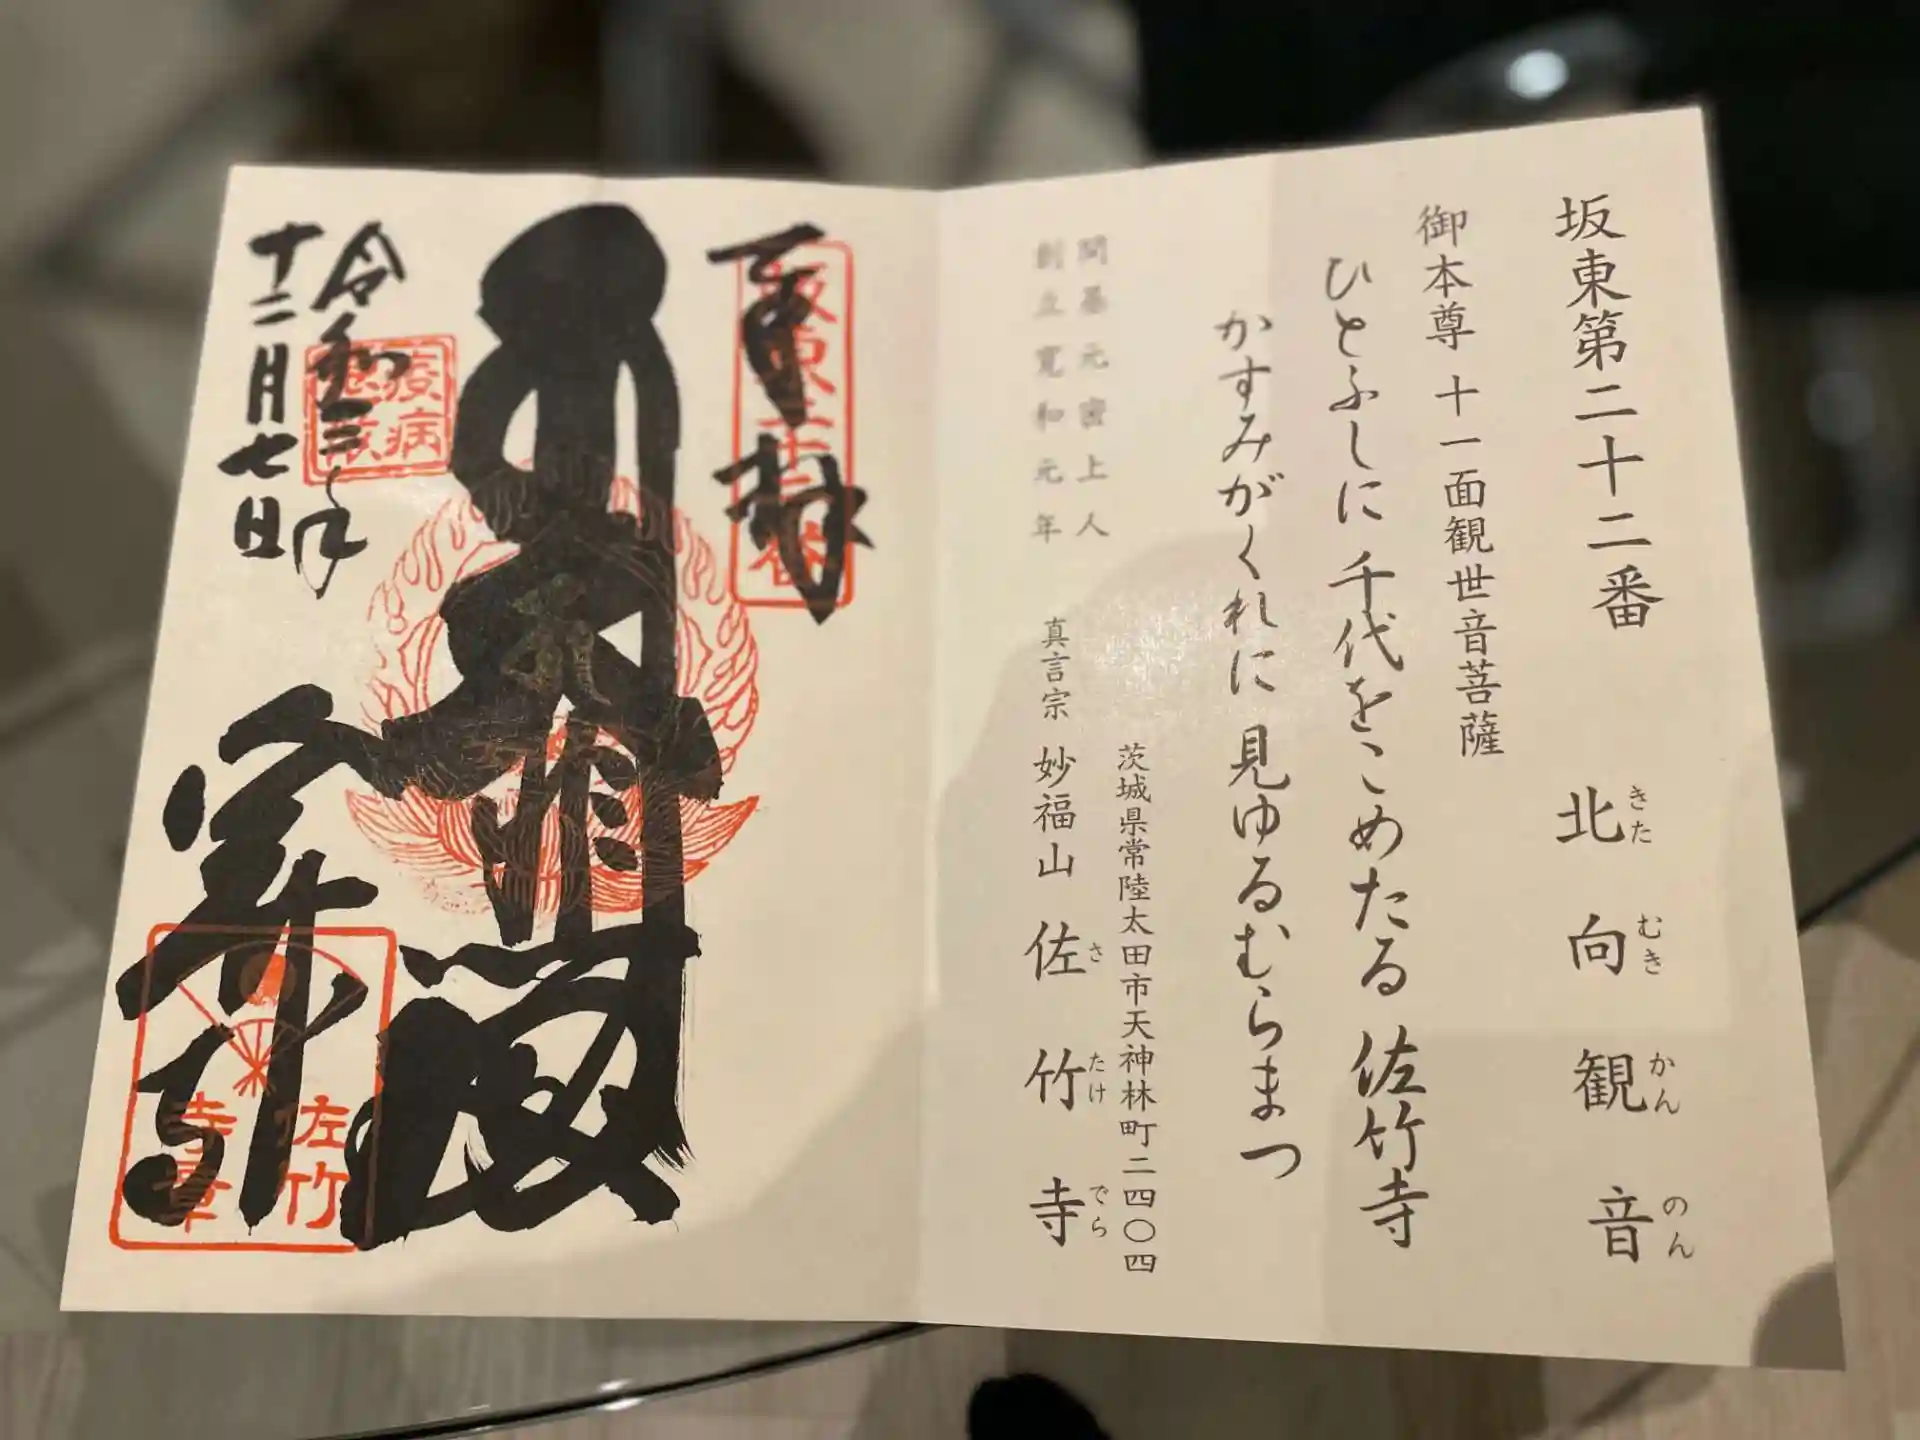 坂東第二十二番 北向観音
きた むき かん のん
御本尊 十一面観世音菩薩
ひとふしに 千代をこめたる 佐竹寺
かすみがくれに 見ゆるむらまつ
開基元密上人
創立寛和元年
茨城県常陸太田市天神林町二四〇四
真言宗 妙福山 佐竹寺
さ たけ でら
奉拝
令和三年
十二月七日
疫病
佐竹
寺章